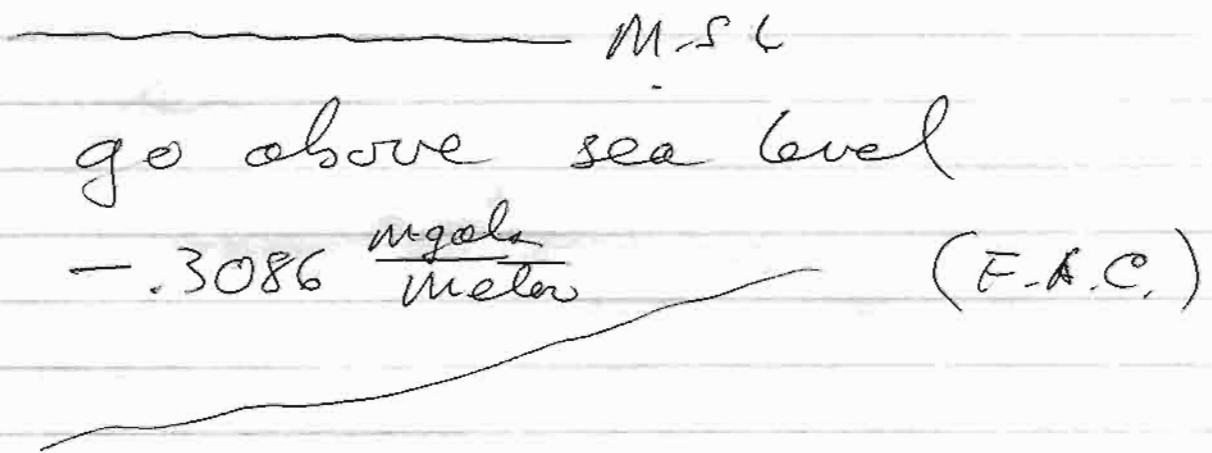 M.S.L
go above sea level
-.3086 mgals/meter (F.A.C.)